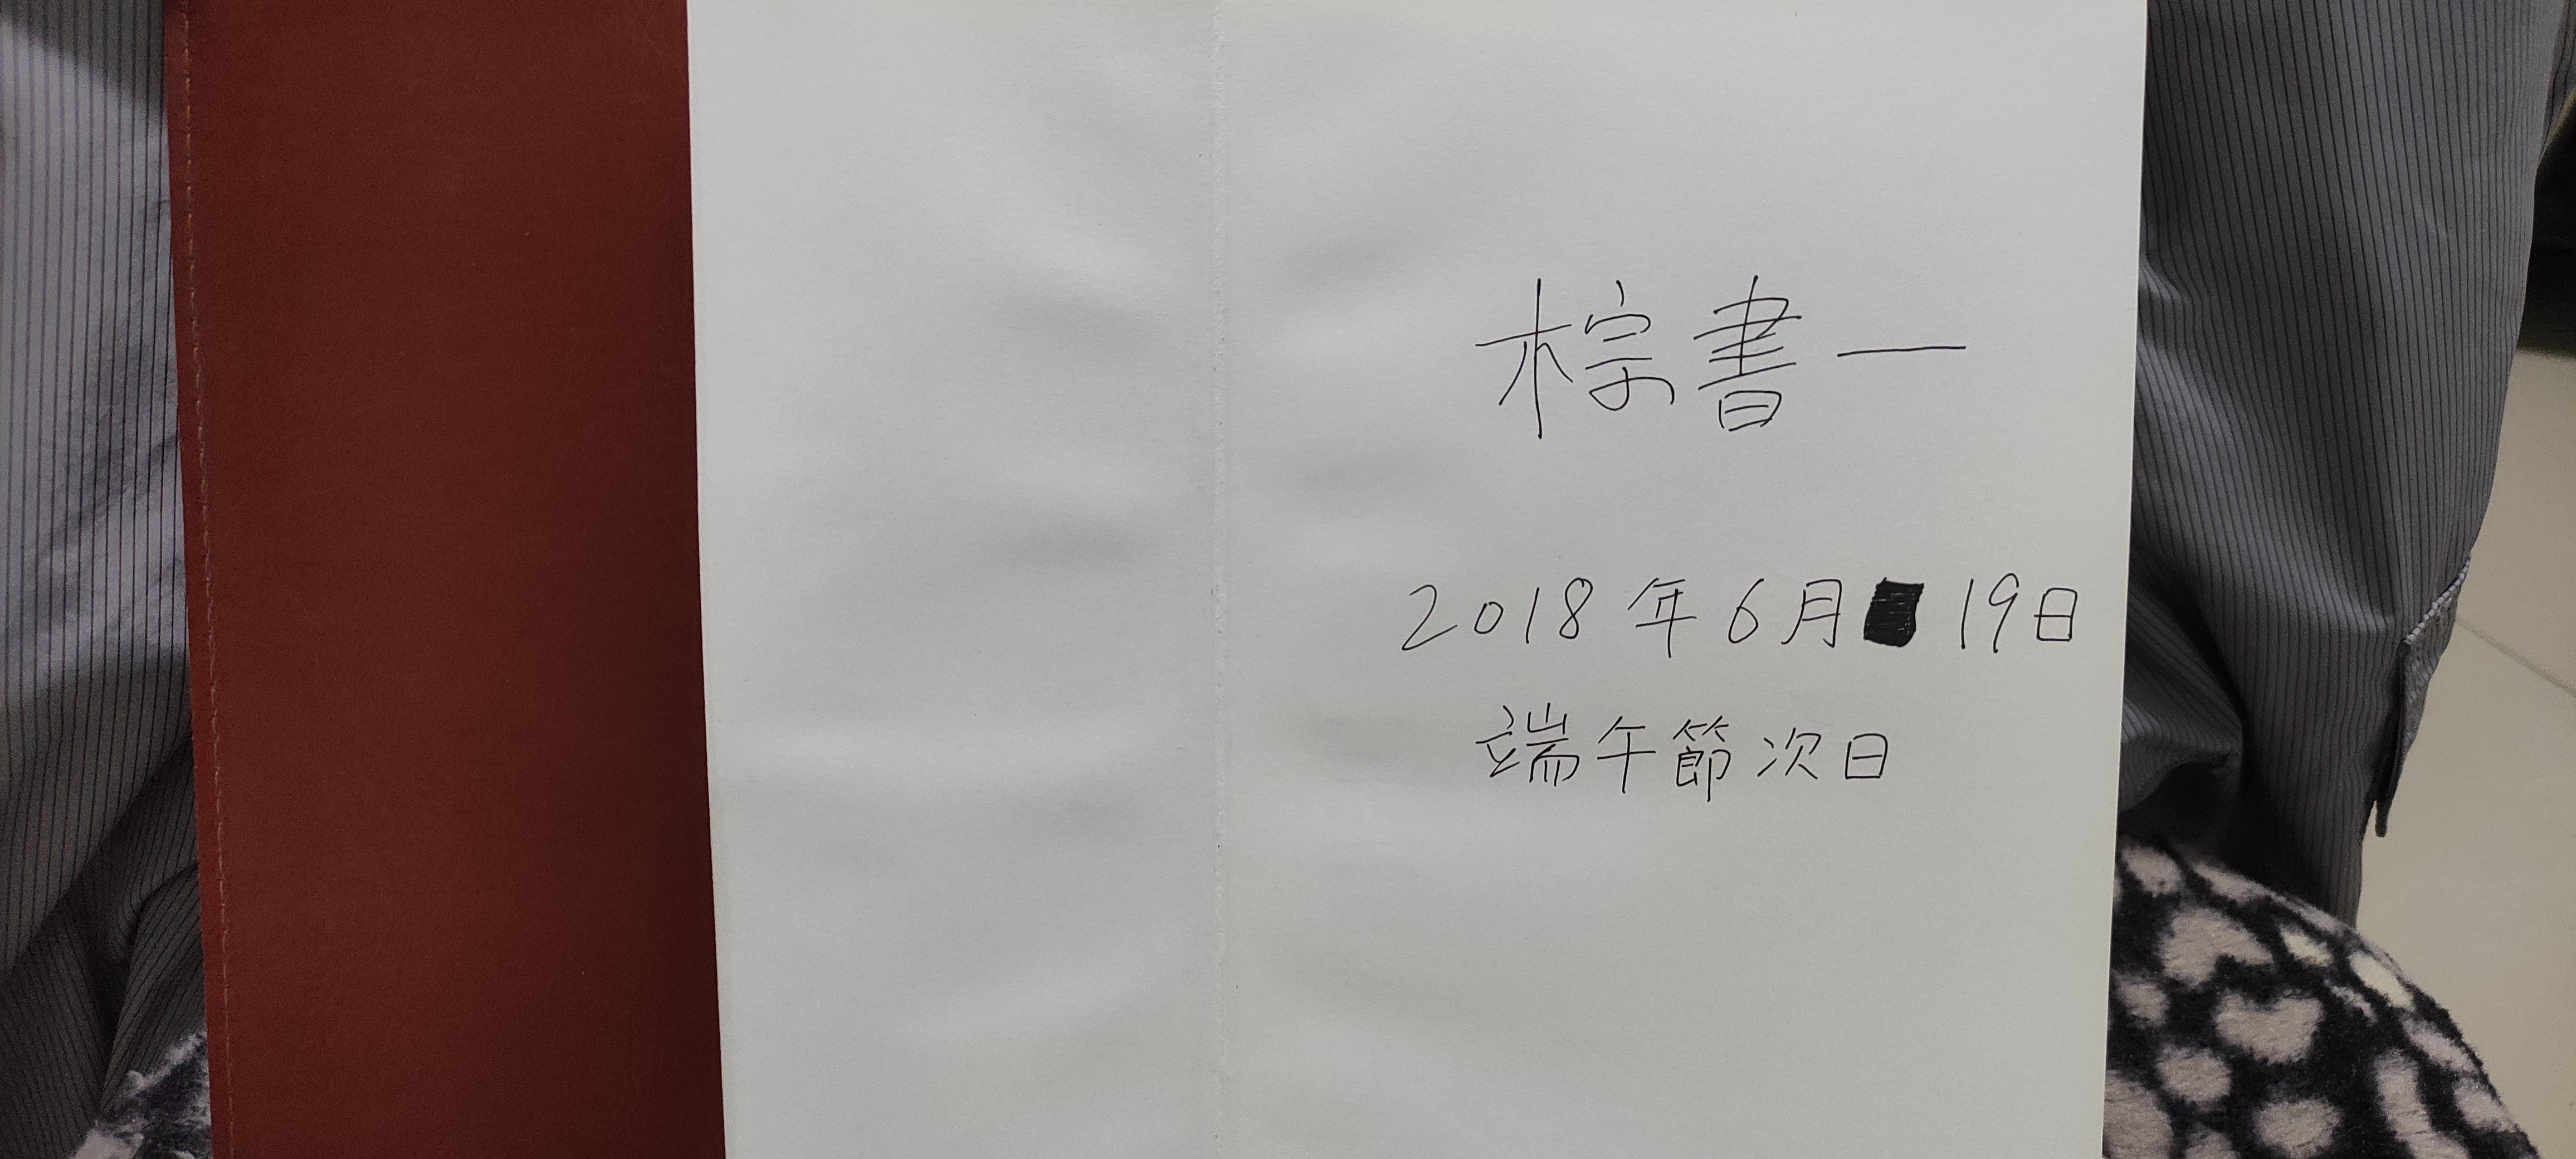 棕書一
2018年6月 19日
端午節次日